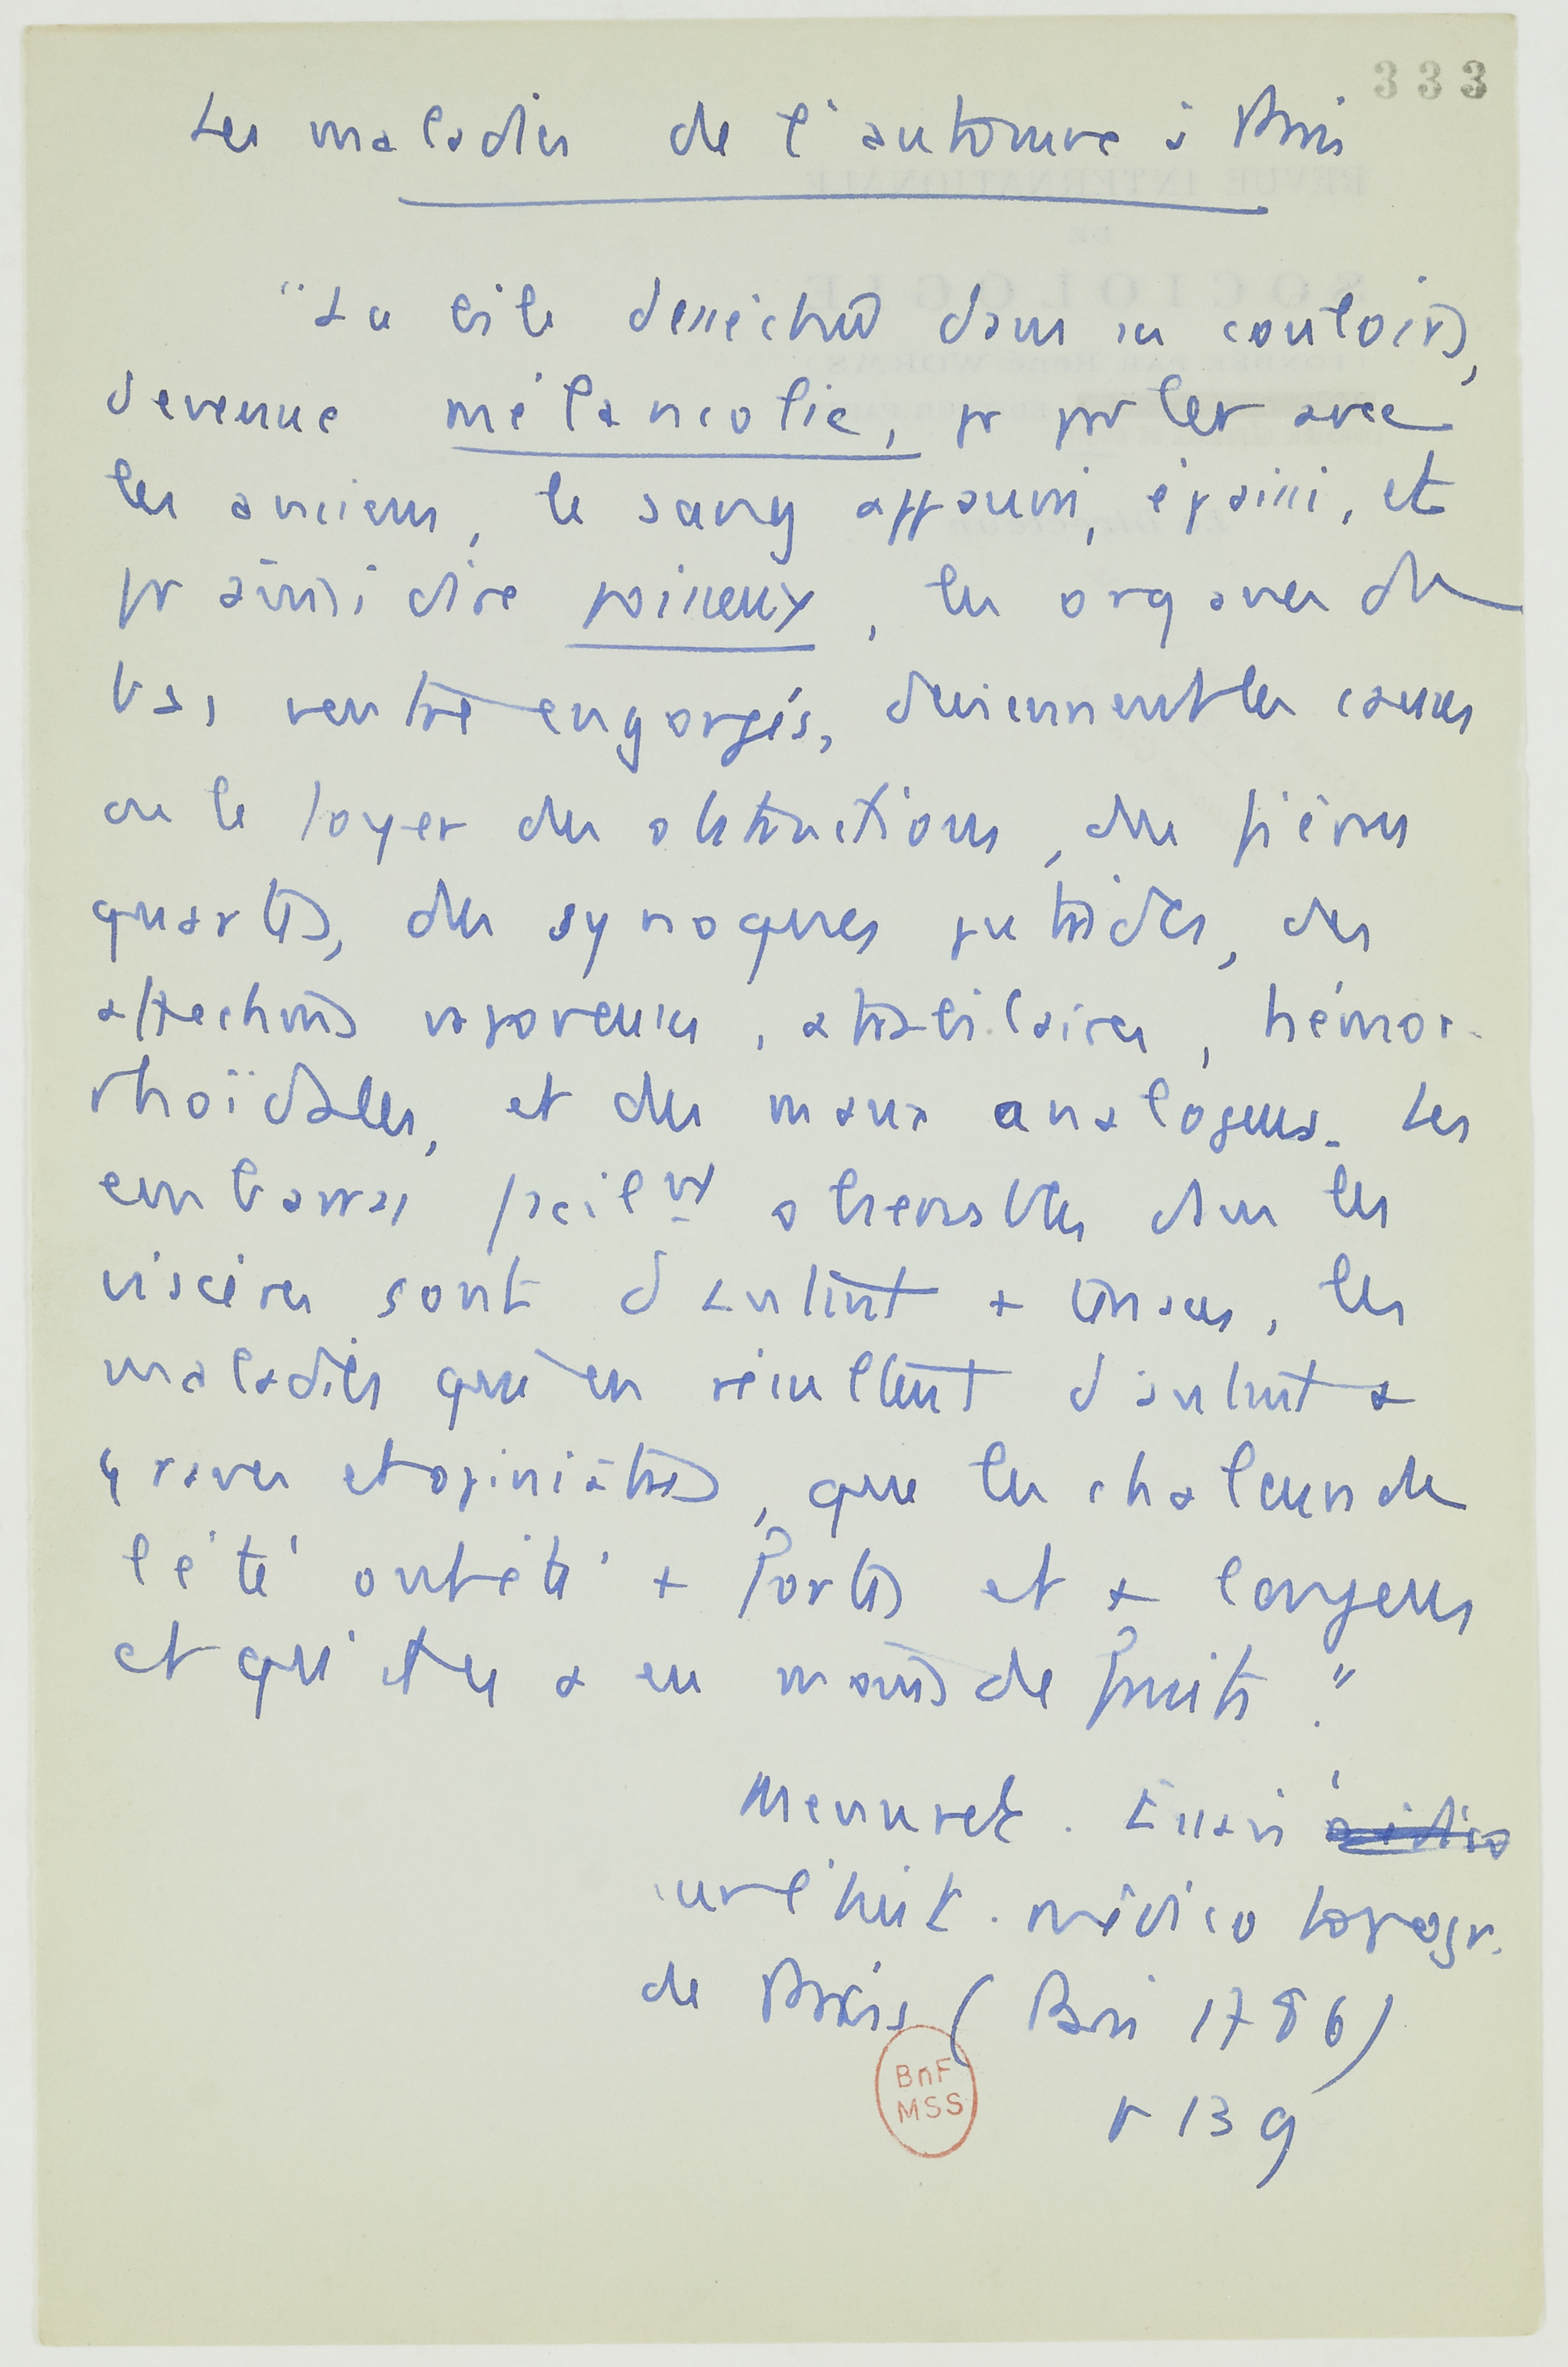 333
Les maladies de l'automne à Paris
"La bile desséchée dans ses couloirs,
devenue mélancolie, pr parler avec
les anciens, le sang appauvri, épaissi, et
pr ainsi dire poisseux, les organes du
bas ventre engorgés, deviennent les causes
ou le foyer des obstructions, des fièvres
quartes, des synoques putrides, des
affections vaporeuses, atrabilaires, hémor-
rhoïdales, et des maux analogues. Les
embarras facilt observables dans les
viscères sont d'autant + tenaces, les
maladies qui en résultent d'autant +
graves et opiniâtres, que les chaleurs de
l'été ont été + fortes et + longues
et qu'il y a eu moins de fruits."
Menuret. Essai
sur l'hist. médico topogr.
de Paris (Paris 1786)
p 139
BnF
MSS